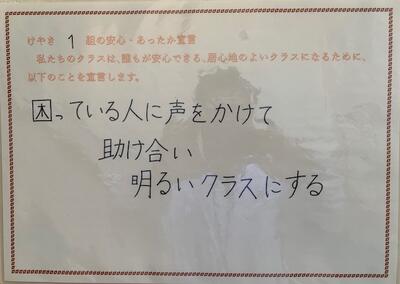 けやき 1 組の安心・あったか宣言
私たちのクラスは、誰もが安心できる、居心地のよいクラスになるために、
以下のことを宣言します。
困っている人に声をかけて
助け合い
明るいクラスにする